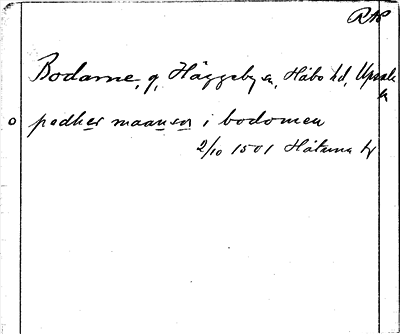 RAP
Bodarne, g, Häggeby sn, Håbo hd, Upsala
ln
o pedher maanson i bodomen
2/10 1501 Håtuna ky